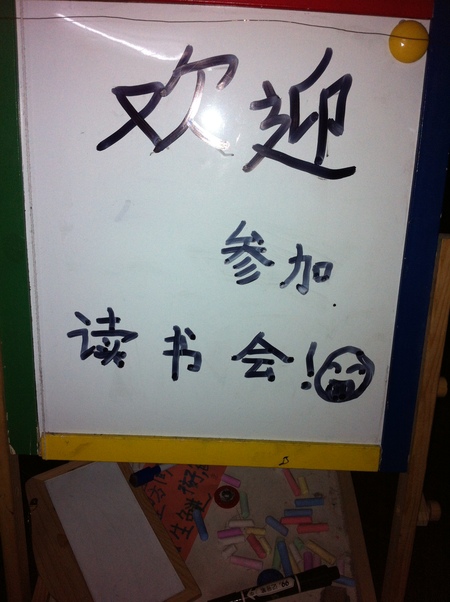 欢迎
参加
读书会!